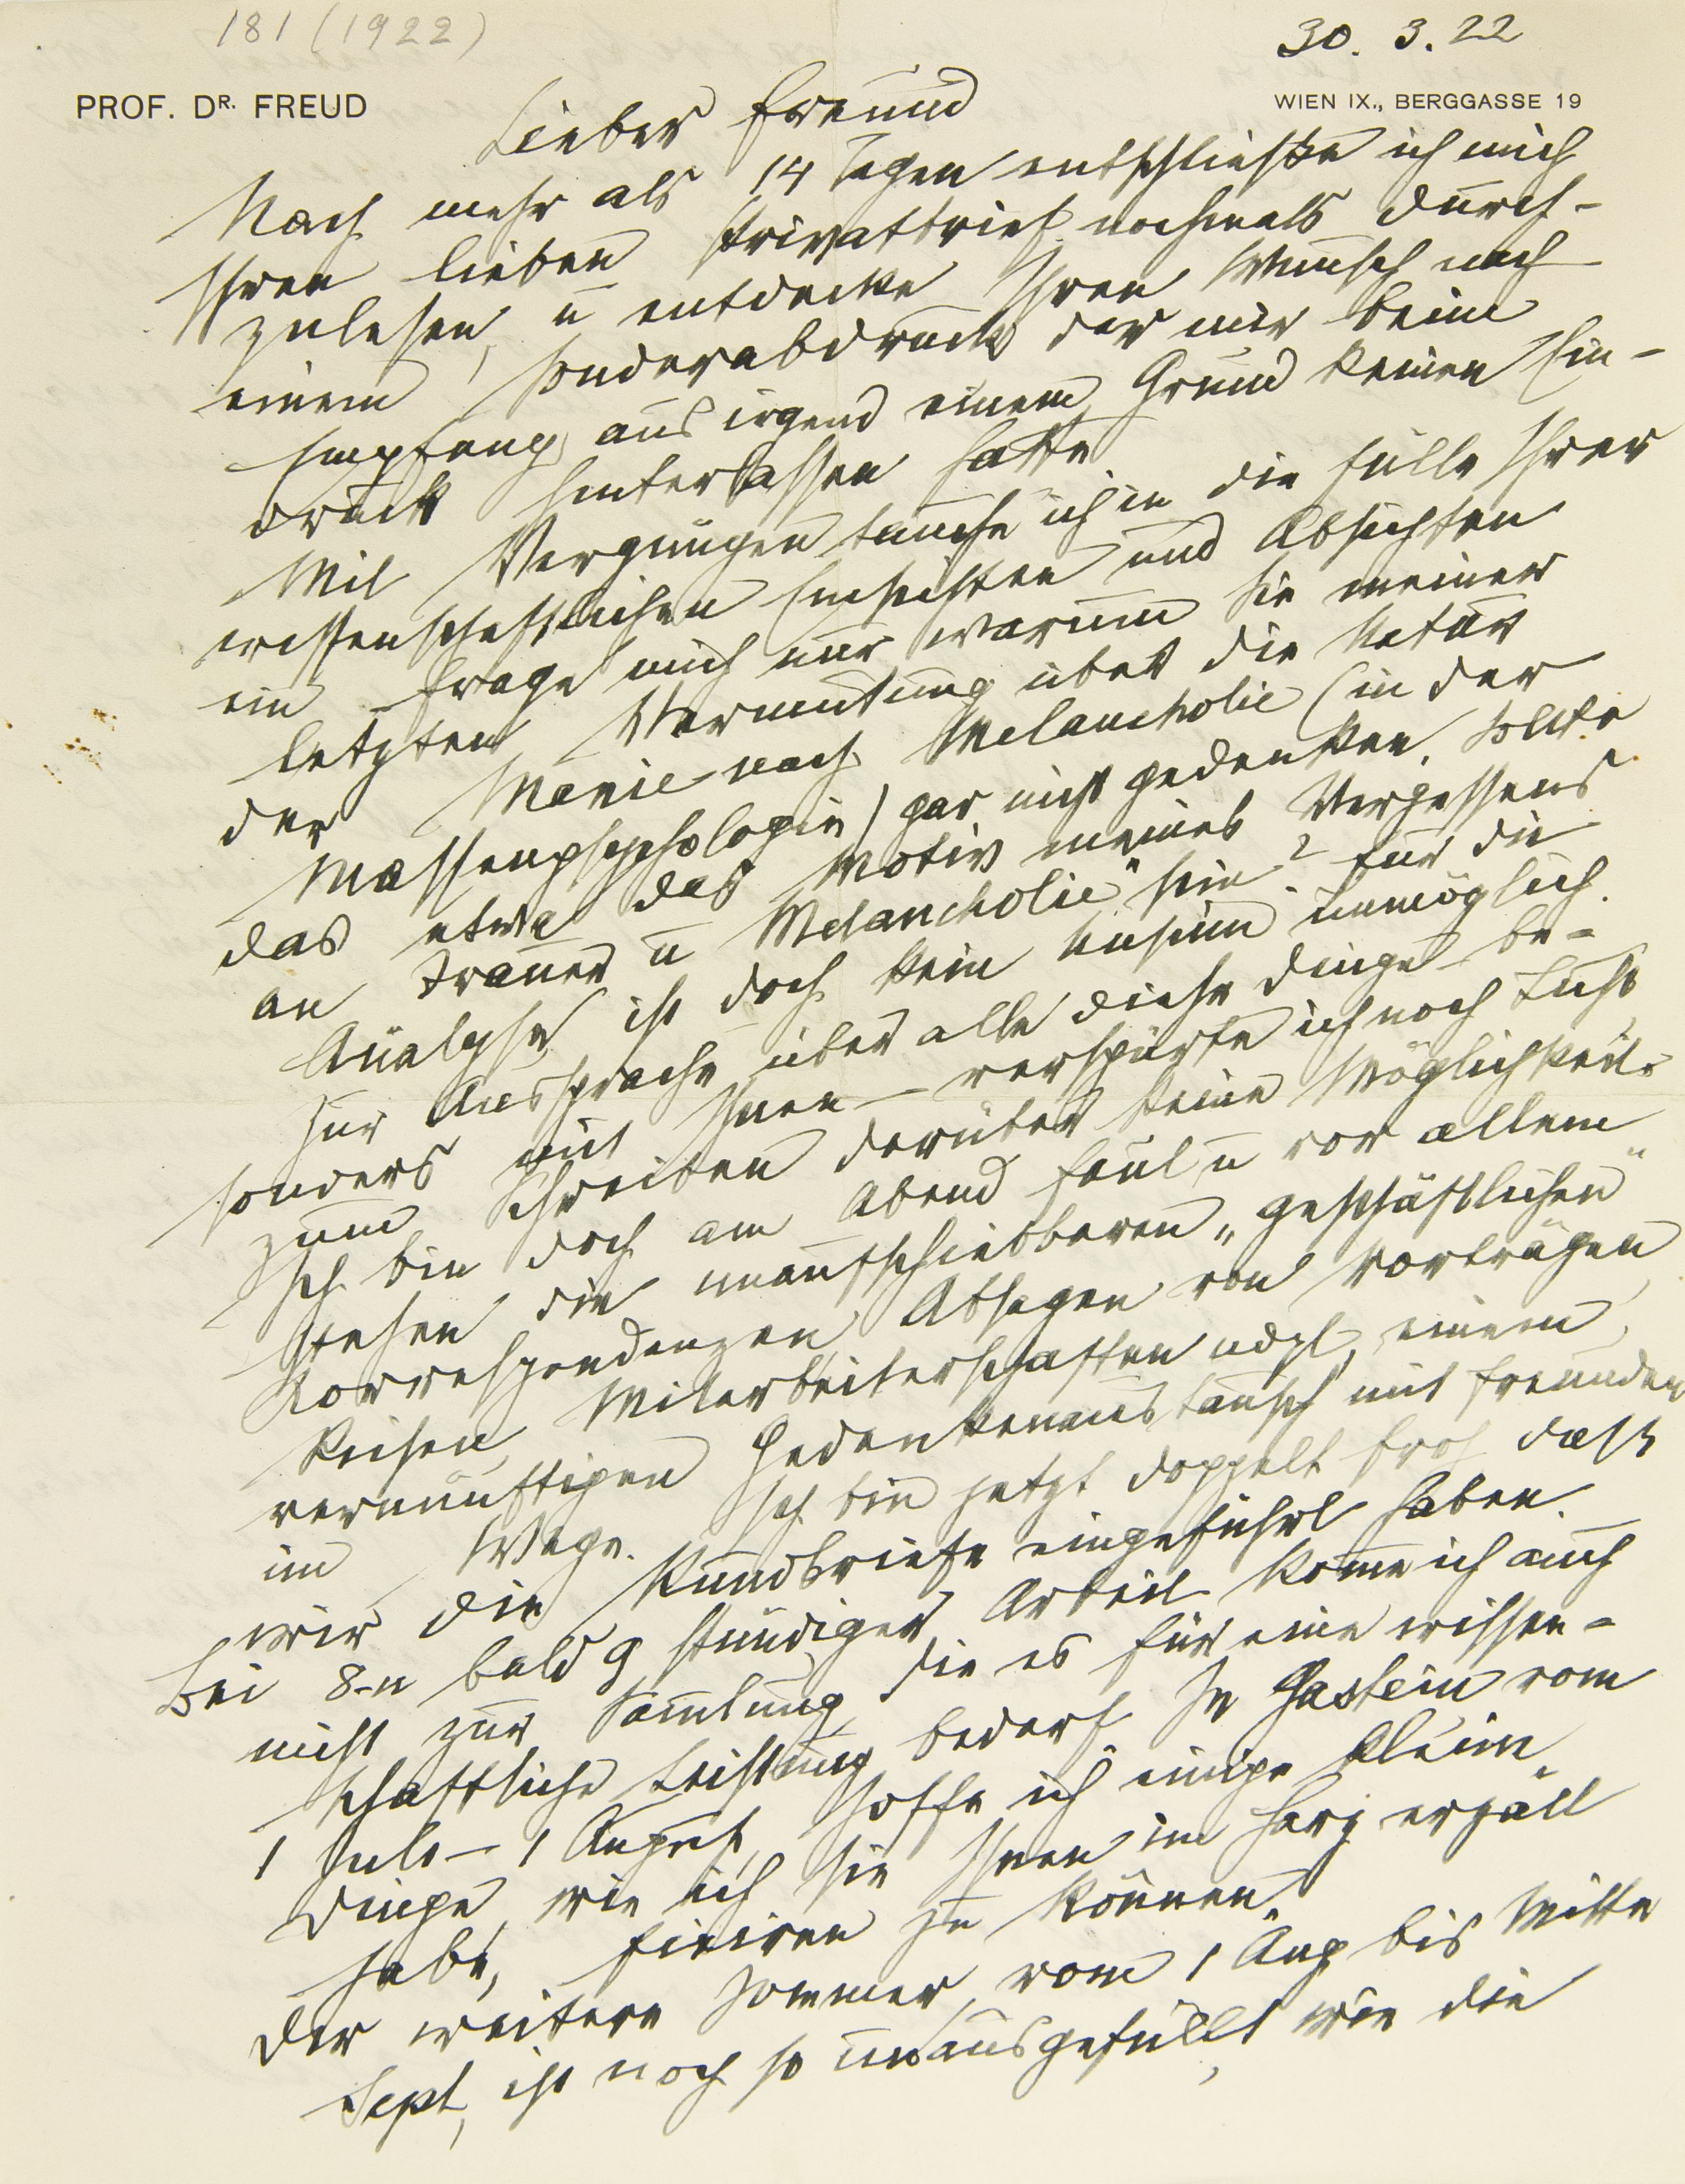 181 (1922)
30. 3. 22
PROF. DR. FREUD
WIEN IX., BERGGASSE 19
Lieber Freund
Nach mehr als 14 Tagen entschließe ich mich
Ihren lieben Privatbrief nochmals durch-
zulesen, u entdecke Ihren Wunsch nach
einem Sonderabdruck der mir beim
Empfang aus irgend einem Grund keinen Ein-
druck hinterlassen hatte.
Mit Vergnügen tauche ich in die Fülle Ihrer
wissenschaftlichen Einsichten und Absichten
ein frage mich nur warum Sie meiner
letzten Vermutung über die Natur
der Manie nach Melancholie (in der
Massenpsychologie) gar nicht gedenken. Sollte
das etwa das Motiv meines Vergessens
an Trauer u Melancholie" sein? Für die
Analyse ist doch kein Unsinn unmöglich.
Zur Aussprache über alle diese Dinge – be-
sonders mit Ihnen – verspürte ich noch Lust,
zum Schreiben darüber keine Möglichkeit.
Ich bin doch am Abend faul u vor allem
stehen die unaufschiebbaren „geschäftlichen"
Korrespondenzen, Absagen von Vorträgen,
Reisen, Mitarbeiterschaften udgl einem
vernünftigen Gedankenaustausch mit Freunden
im Wege. Ich bin jetzt doppelt froh daß
wir die Rundbriefe eingeführt haben.
Bei 8-u bald 9 stündiger Arbeit komme ich auch
nicht zur Sammlung, die es für eine wissen-
schaftliche Leistung bedarf. In Gastein vom
1 Juli – 1 August, hoffe ich einige kleine
Dinge, wie ich sie Ihnen im Harz erzält
habe, fixiren zu können.
Der weitere Sommer, vom 1 Aug bis Mitte
Sept, ist noch so unausgefüllt, wie die